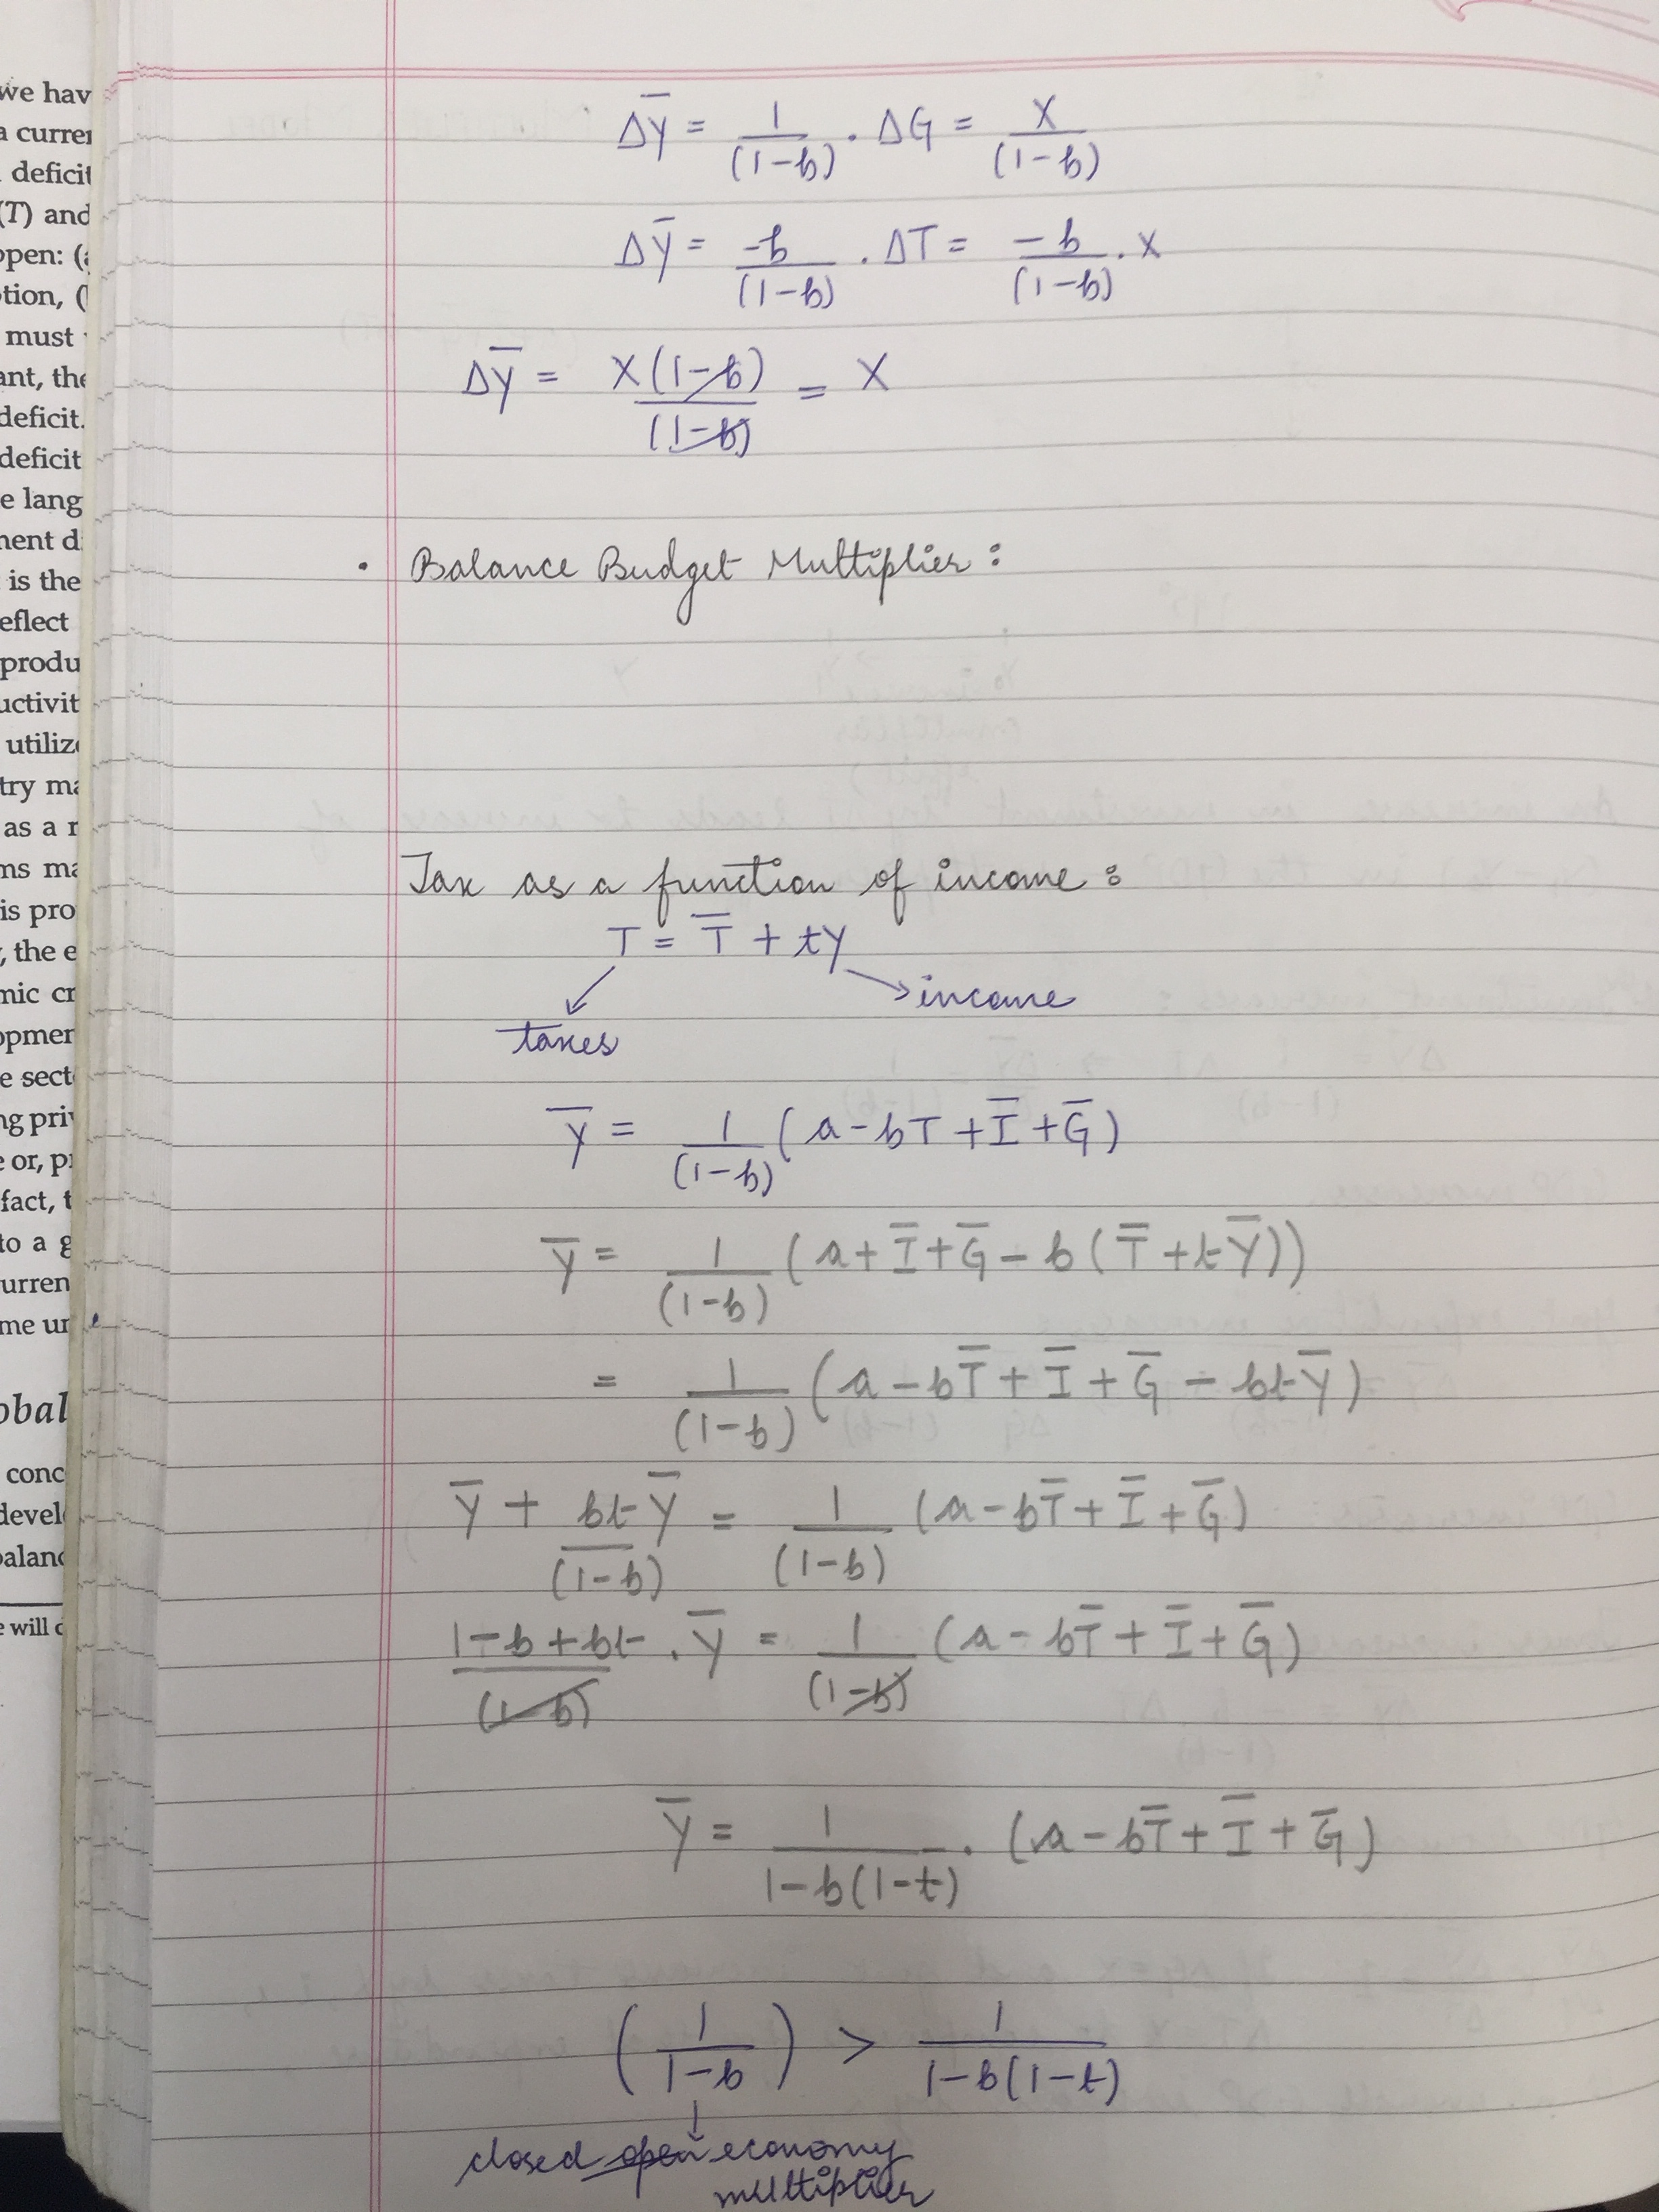 we hav
a curren
deficit
(T) and
ppen: (a
tion, (
must
ant, the
deficit.
deficit
e lang
nent d
is the
eflect
produ
uctivit
utilize
try ma
as a r
ms ma
is pro
, the e
mic cr
opmen
e sect
ng priv
e or, p
fact, t
to a g
urren
me un
obal
conc
devel
palanc
e will
ΔȲ = 1/(1-b) . ΔG = X/(1-b)
ΔȲ = -b/(1-b) . ΔT = -b/(1-b) . X
ΔȲ = X(1-b)/(1-b) = X
• Balance Budget Multiplier :
Tax as a function of income :
T = T̄ + tY
income
taxes
Ȳ = 1/(1-b) (a - bT + Ī + Ḡ)
Ȳ = 1/(1-b) (a + Ī + Ḡ - b(T̄ + tȲ))
= 1/(1-b) (a - bT̄ + Ī + Ḡ - btȲ)
Ȳ + btȲ/(1-b) = 1/(1-b) (a - bT̄ + Ī + Ḡ)
1-b+bt/(1-b) . Ȳ = 1/(1-b) (a - bT̄ + Ī + Ḡ)
Ȳ = 1/1-b(1-t) . (a - bT̄ + Ī + Ḡ)
(1/1-b) > 1/1-b(1-t)
closed open economy
multiplier